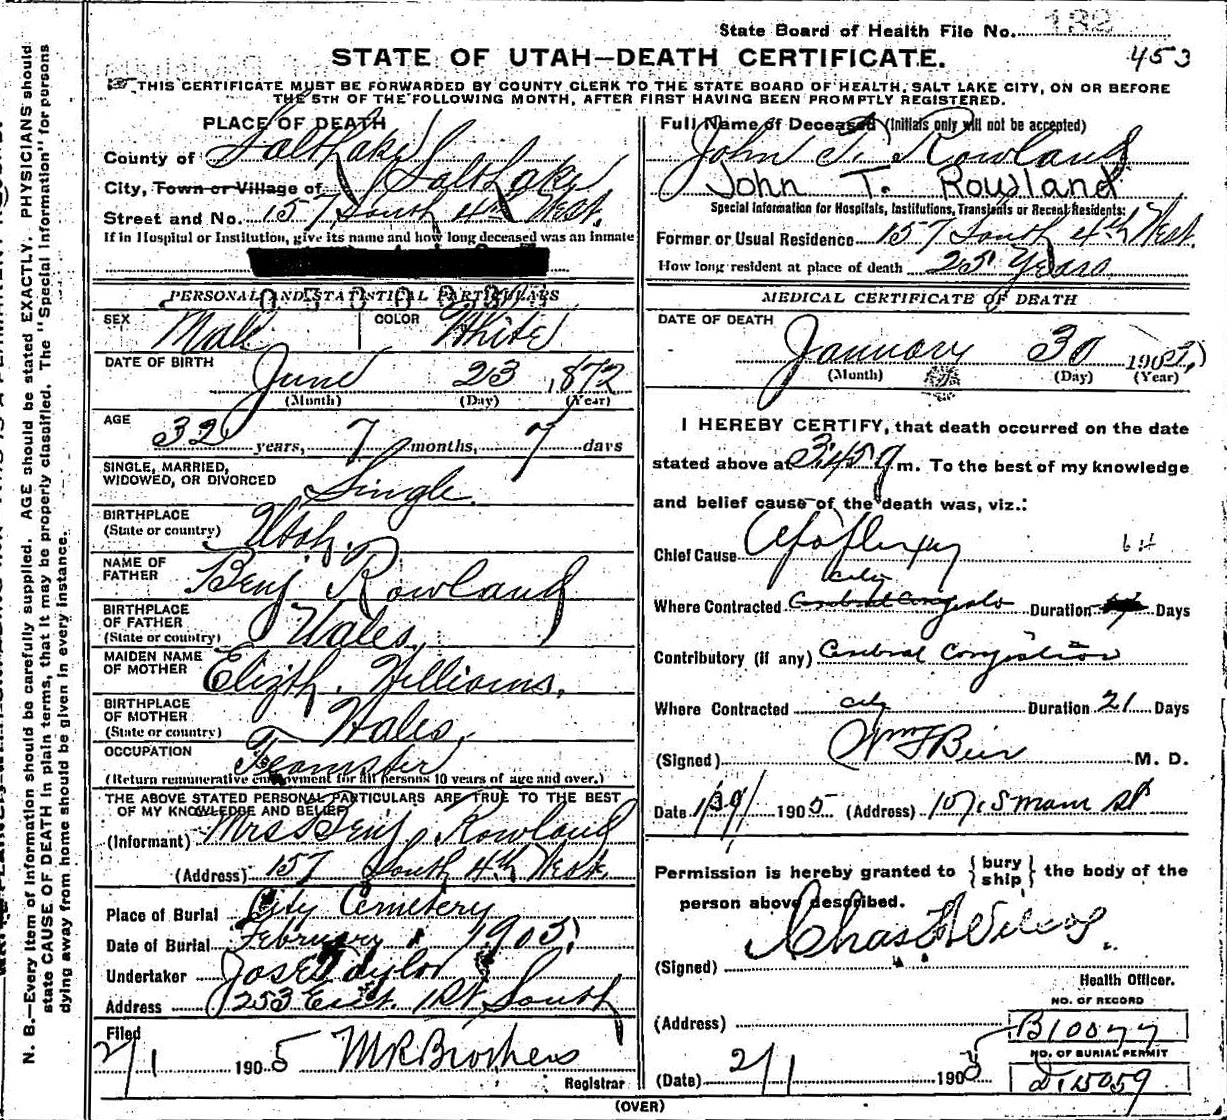 State Board of Health File No. 132
453
STATE OF UTAH—DEATH CERTIFICATE.
THIS CERTIFICATE MUST BE FORWARDED BY COUNTY CLERK TO THE STATE BOARD OF HEALTH, SALT LAKE CITY, ON OR BEFORE
THE 5TH OF THE FOLLOWING MONTH, AFTER FIRST HAVING BEEN PROMPTLY REGISTERED.
PLACE OF DEATH
County of Salt Lake
City, Town or Village of Salt Lake
Street and No. 157 South 4th West.
If in Hospital or Institution, give its name and how long deceased was an inmate
PERSONAL AND STATISTICAL PARTICULARS
SEX Male COLOR White
DATE OF BIRTH June 23 1872
(Month) (Day) (Year)
AGE 32 years, 7 months, 7 days
SINGLE, MARRIED,
WIDOWED, OR DIVORCED Single
BIRTHPLACE
(State or country) Utah.
NAME OF
FATHER Benj Rowland
BIRTHPLACE
OF FATHER
(State or country) Wales.
MAIDEN NAME
OF MOTHER Elizth. Williams.
BIRTHPLACE
OF MOTHER
(State or country) Wales.
OCCUPATION Teamster
(Return remunerative employment for all persons 10 years of age and over.)
THE ABOVE STATED PERSONAL PARTICULARS ARE TRUE TO THE BEST
OF MY KNOWLEDGE AND BELIEF
(Informant) Mrs Benj Rowland
(Address) 157 South 4th West.
Place of Burial City Cemetery
Date of Burial February 1 1905
Undertaker Jos E Taylor
Address 253 East 1st South
Filed
2/1 1905 M R Brothers
Registrar
Full Name of Deceased (Initials only will not be accepted)
John T. Rowland
John T. Rowland
Special Information for Hospitals, Institutions, Transients or Recent Residents:
Former or Usual Residence 157 South 4th West.
How long resident at place of death 25 Years
MEDICAL CERTIFICATE OF DEATH
DATE OF DEATH
January 30 1905
(Month) (Day) (Year)
I HEREBY CERTIFY, that death occurred on the date
stated above at 3:45 m. To the best of my knowledge
and belief cause of the death was, viz.:
Chief Cause Apoplexy 64
city
Where Contracted Cerebral Congestion Duration Days
Contributory (if any) Cerebral Congestion
Where Contracted city Duration 21 Days
(Signed) Wm F Beer M. D.
Date 1/30/ 1905 (Address) 107 S Main St
Permission is hereby granted to { bury ship } the body of the
person above described.
(Signed) Chas F Wilcox
Health Officer.
NO. OF RECORD
(Address) B10077
NO. OF BURIAL PERMIT
(Date) 2/1 1905 D15059
(OVER)
N. B.—Every item of information should be carefully supplied. AGE should be stated EXACTLY. PHYSICIANS should
state CAUSE OF DEATH in plain terms, that it may be properly classified. The "Special Information" for persons
dying away from home should be given in every instance.